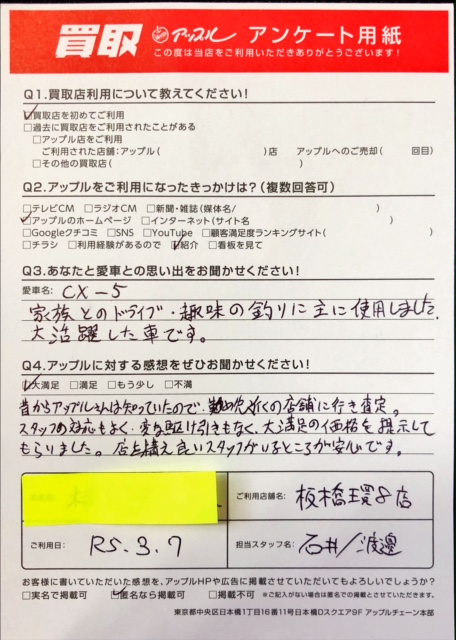 買取 アップル アンケート用紙
この度は当店をご利用いただきありがとうございます!
Q1.買取店利用について教えてください!
☑買取店を初めてご利用
□過去に買取店をご利用されたことがある
□アップル店をご利用
ご利用された店舗:アップル( )店 アップルへのご売却( 回目)
□その他の買取店( )
Q2.アップルをご利用になったきっかけは?(複数回答可)
□テレビCM □ラジオCM □新聞・雑誌(媒体名/ )
☑アップルのホームページ □インターネット(サイト名 )
□Googleクチコミ □SNS □YouTube □顧客満足度ランキングサイト( )
□チラシ □利用経験があるので ☑紹介 □看板を見て
Q3.あなたと愛車との思い出をお聞かせください!
愛車名: CX-5
家族とのドライブ・趣味の釣りに主に使用しました。
大活躍した車です。
Q4.アップルに対する感想をぜひお聞かせください!
☑大満足 □満足 □もう少し □不満
昔からアップルさんは知っていたので、近くの店舗に行き査定。
スタッフの対応もよく、変な駆け引きもなく、大満足の価格を提示して
もらいました。店も構え良いスタッフがいるところが安心です。
ご利用店舗名: 板橋環8店
ご利用日: R5.3.7 担当スタッフ名: 石井/渡邊
お客様に書いていただいた感想を、アップルHPや広告に掲載させていただいてもよろしいでしょうか?
□実名で掲載 ☑匿名なら掲載 □掲載不可 ※ご記入がない場合は匿名での掲載とさせていただきます。
東京都中央区日本橋1丁目16番11号日本橋Dスクエア9F アップルチェーン本部